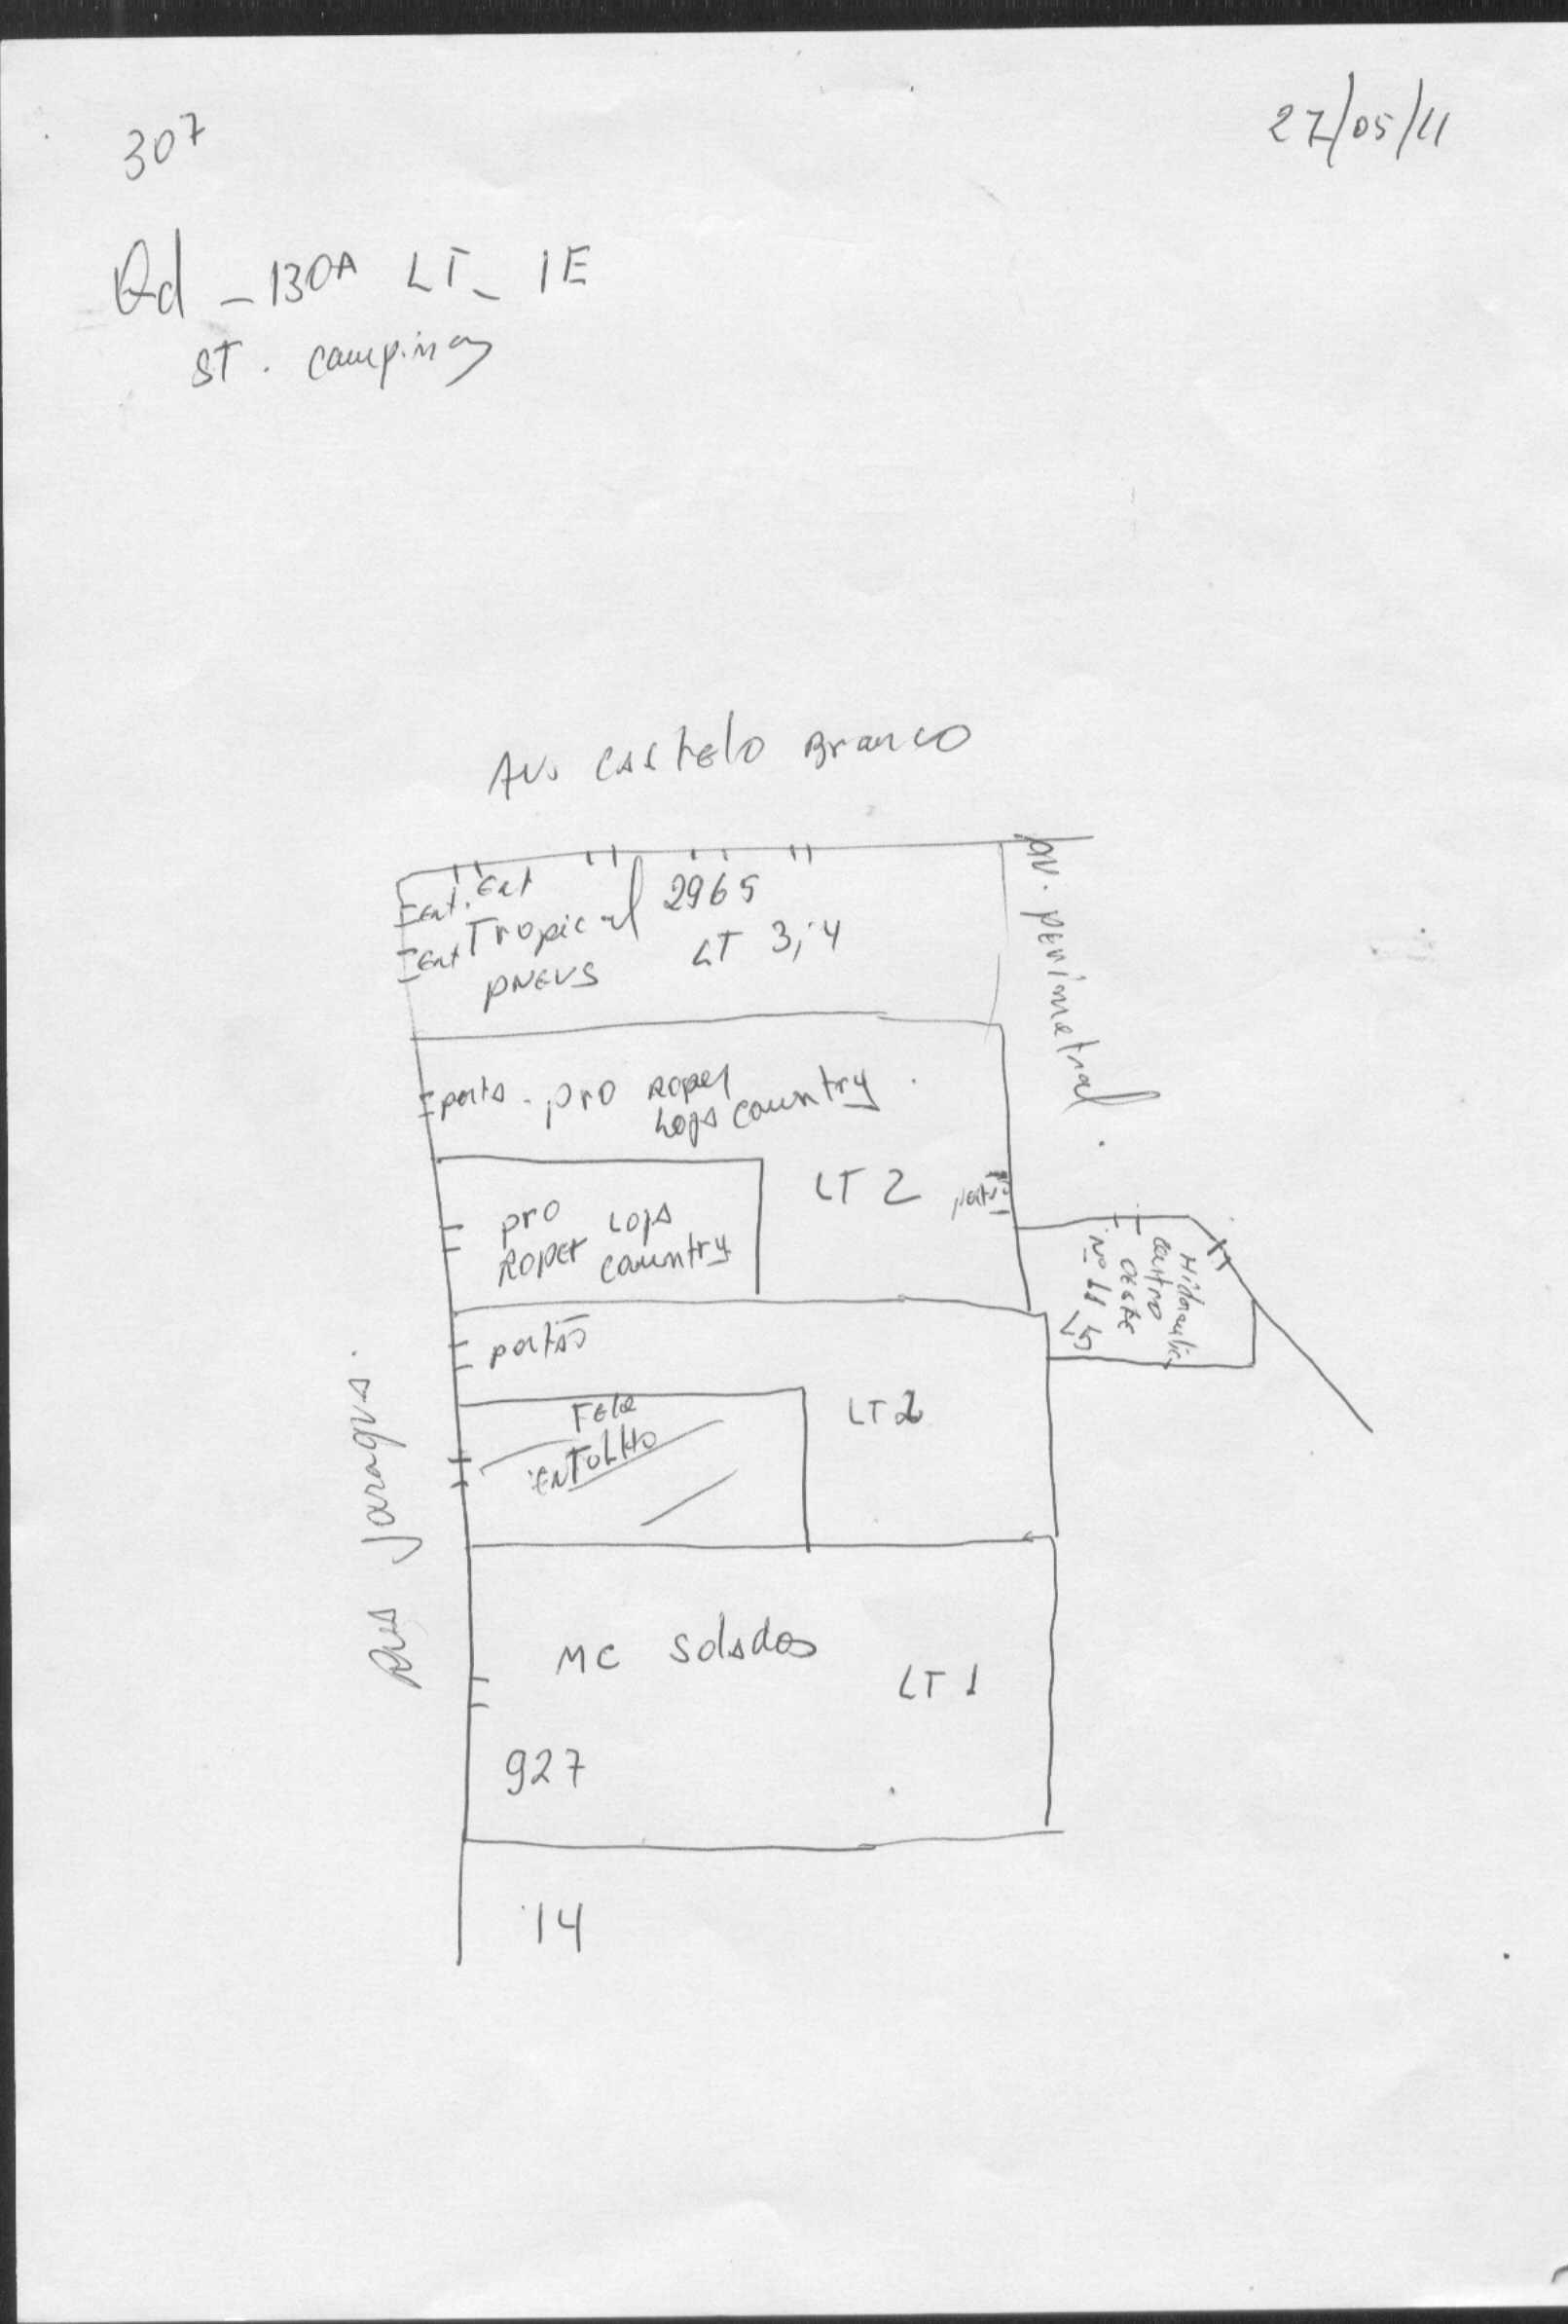 307
27/05/11
Qd - 130A LT - 1E
ST. campinas
Av. CASTElO BrancO
Ent. Ent
Ent Tropical 2965
LT 3, 4
PNEUS
AV. pErimetral.
porta. prO ROPER
LOJA country.
LT 2 portão
prO LOJA
ROPER country
Hidraulica
centro
OESTE
Nº
portão
LT 2
TELE
ENTULHO
RUA Jaragua.
MC SOlAdos
LT 1
927
14